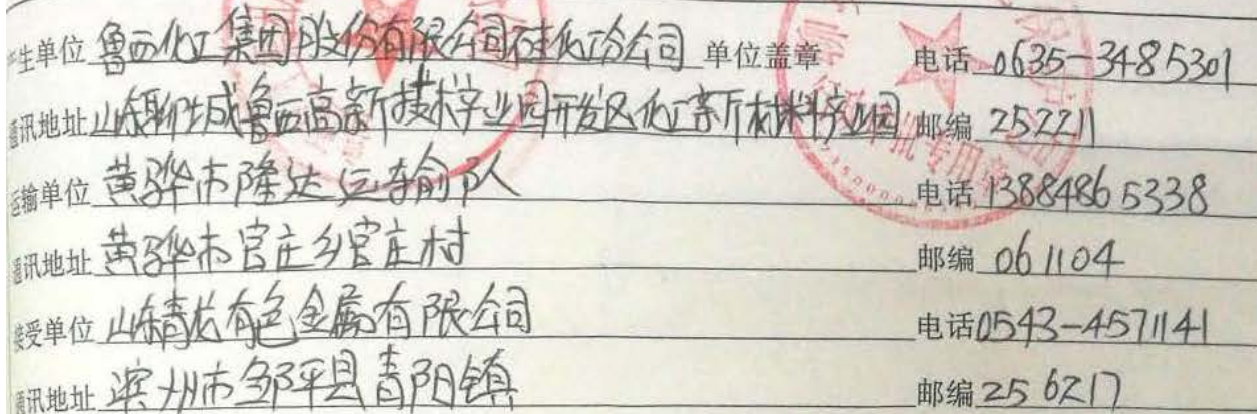 产生单位 鲁西化工集团股份有限公司硅化工分公司 单位盖章 电话 0635-3485301
通讯地址 山东聊城鲁西高新技术产业园开发区化工新材料产业园 邮编 252211
运输单位 黄骅市隆达运输队 电话 13884865338
通讯地址 黄骅市官庄乡官庄村 邮编 061104
接受单位 山东青龙有色金属有限公司 电话 0543-4571141
通讯地址 滨州市邹平县青阳镇 邮编 256217
批专用章